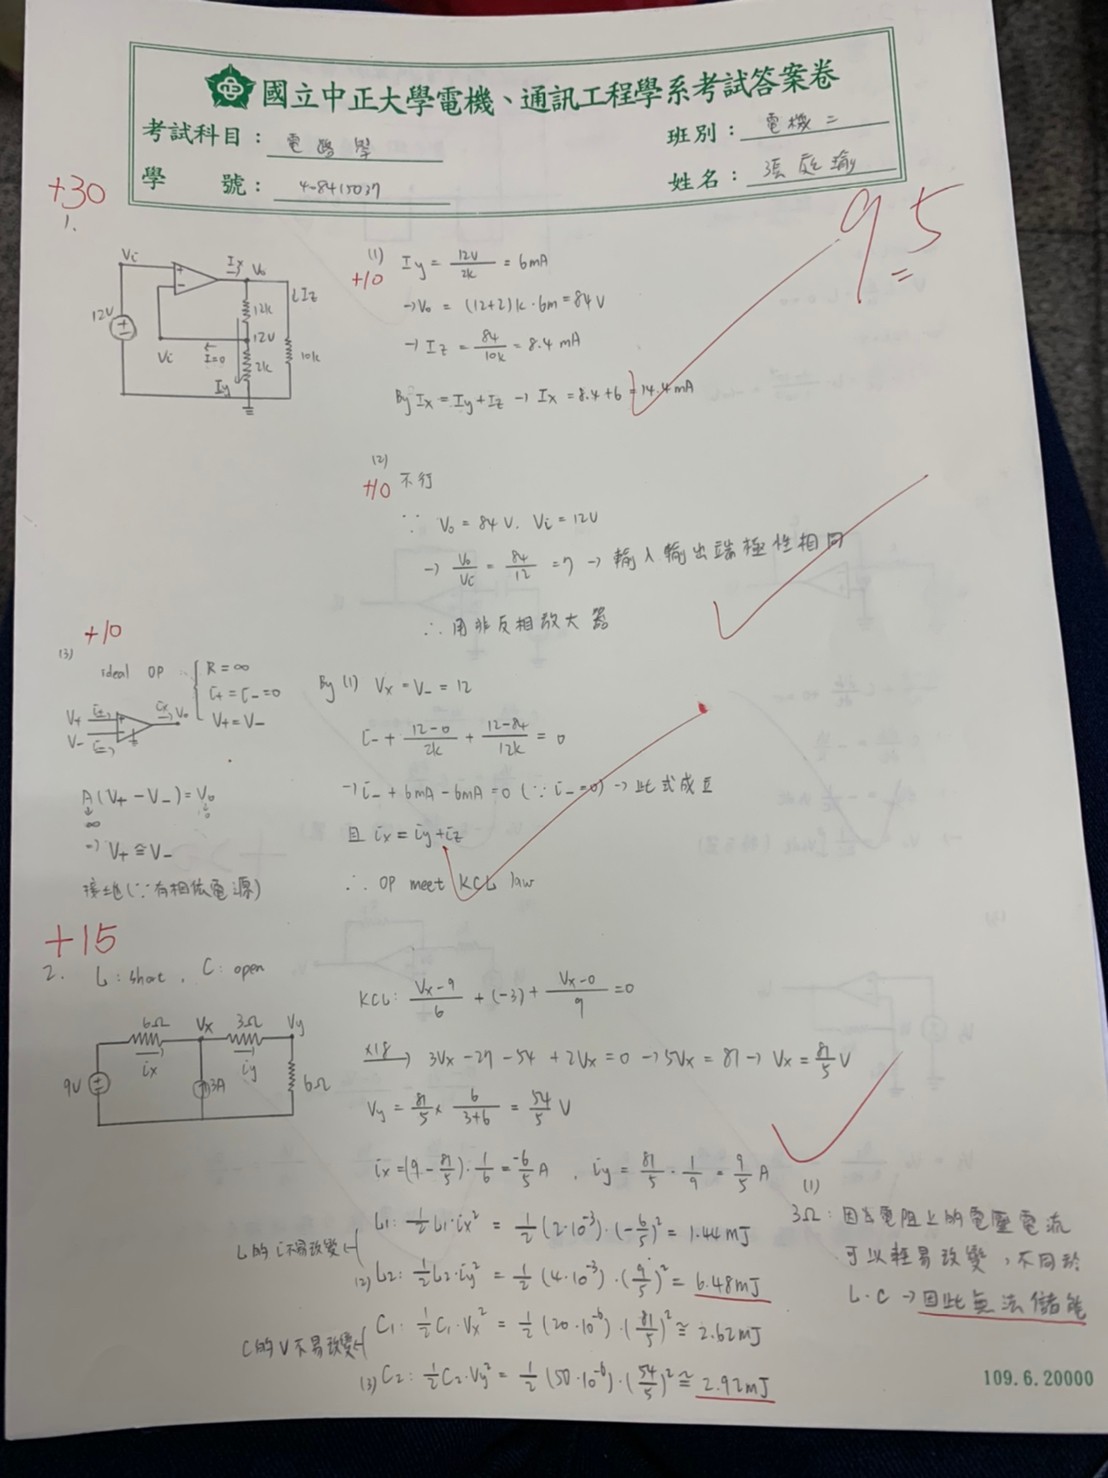 國立中正大學電機、通訊工程學系考試答案卷
考試科目：電路學
班別：電機二
學 號：
姓名：張庭瑜
95
+30
1.
Vi
Ix
Vo
12V
12k
↓Iz
12V
Vi
I=0
2k
10k
Iy
(1)
+10
Iy = 12V/2k = 6mA
→Vo = (12+2)k·6m = 84V
→Iz = 84/10k = 8.4 mA
By Ix = Iy+Iz → Ix = 8.4+6 = 14.4mA
(2)
+10
不行
∵ Vo = 84V. Vi = 12V
→ Vo/Vi = 84/12 = 7 → 輸入輸出端極性相同
∴ 用非反相放大器
+10
(3)
ideal OP
R = ∞
i+ = i- = 0
V+ = V-
V+
i+
V-
i-
ix
Vo
A(V+ - V-) = Vo
∞
→ V+ ≅ V-
接地(∵有相依電源)
By (1) Vx = V- = 12
i- + (12-0)/2k + (12-84)/12k = 0
→ i- + 6mA - 6mA = 0 (∵ i- = 0) → 此式成立
且 ix = iy+iz
∴ OP meet KCL law
+15
2. L: short, C: open
6Ω
Vx
3Ω
Vy
ix
iy
9V
3A
6Ω
KCL: (Vx-9)/6 + (-3) + (Vx-0)/9 = 0
×18→ 3Vx - 27 - 54 + 2Vx = 0 → 5Vx = 81 → Vx = 81/5 V
Vy = 81/5 × 6/(3+6) = 54/5 V
ix = (9 - 81/5)·1/6 = -6/5 A , iy = 81/5 · 1/9 = 9/5 A
L的i不易改變
L1: 1/2 L1·ix² = 1/2 (2·10⁻³)·(-6/5)² = 1.44mJ
(2) L2: 1/2 L2·iy² = 1/2 (4·10⁻³)·(9/5)² = 6.48mJ
C的V不易改變
C1: 1/2 C1·Vx² = 1/2 (20·10⁻⁶)·(81/5)² ≅ 2.62mJ
(3) C2: 1/2 C2·Vy² = 1/2 (50·10⁻⁶)·(54/5)² ≅ 2.92mJ
(1)
3Ω: 因為電阻上的電壓電流
可以輕易改變,不同於
L.C →因此無法儲能
109.6.20000